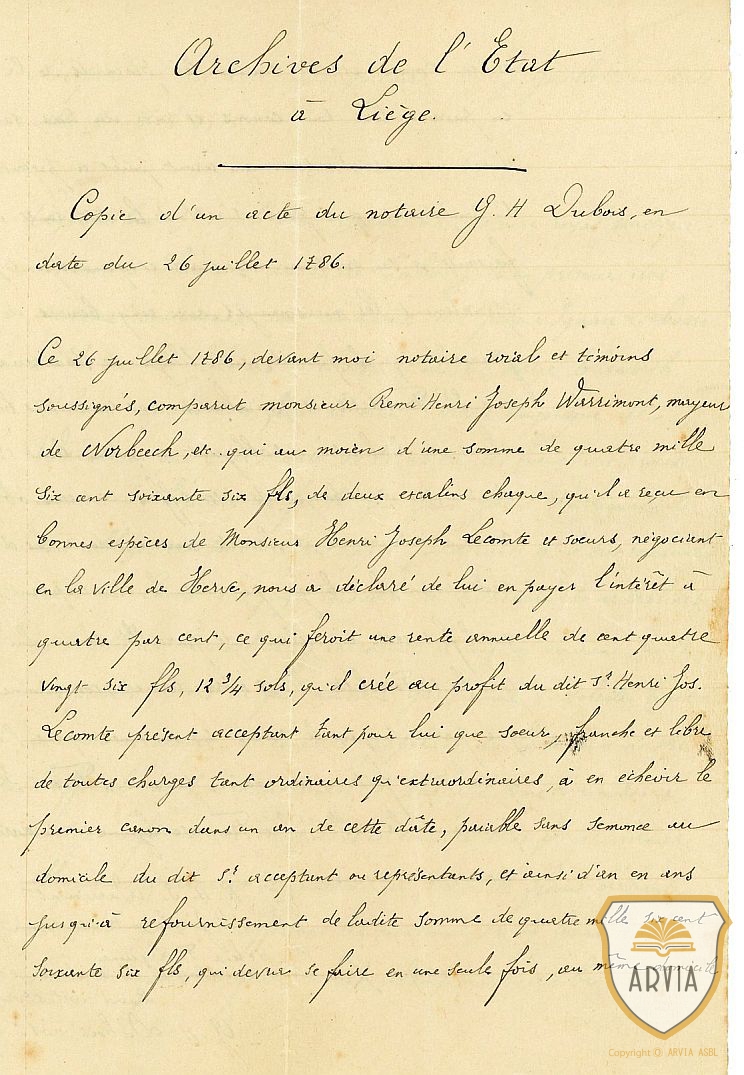 Archives de l'Etat
à Liège.
Copie d'un acte du notaire G. H Dubois, en
date du 26 juillet 1786.
Ce 26 juillet 1786, devant moi notaire roïal et témoins
soussignés, comparut monsieur Remi Henri Joseph Warrimont, mayeur
de Norbeech, etc. qui au moïen d'une somme de quatre mille
six cent soixante six fls, de deux escalins chaque, qu'il a reçu en
bonnes espèces de Monsieur Henri Joseph Lecomte et soeurs, négociant
en la ville de Herve, nous a déclaré de lui en payer l'intérêt à
quatre par cent, ce qui feroit une rente annuelle de cent quatre
vingt six fls, 12 3/4 sols, qu'il crée au profit du dit Sr. Henri Jos.
Lecomte présent acceptant tant pour lui que soeur, franche et libre
de toutes charges tant ordinaires qu'extraordinaires, à en échevir le
premier canon dans un an de cette dâte, païable sans semonce au
domicile du dit Sr. acceptant ou représentants, et ainsi d'an en ans
jusqu'à refournissement de ladite somme de quatre mille six cent
soixante six fls, qui devra se faire en une seule fois, au même domicile
ARVIA
Copyright © ARVIA ASBL